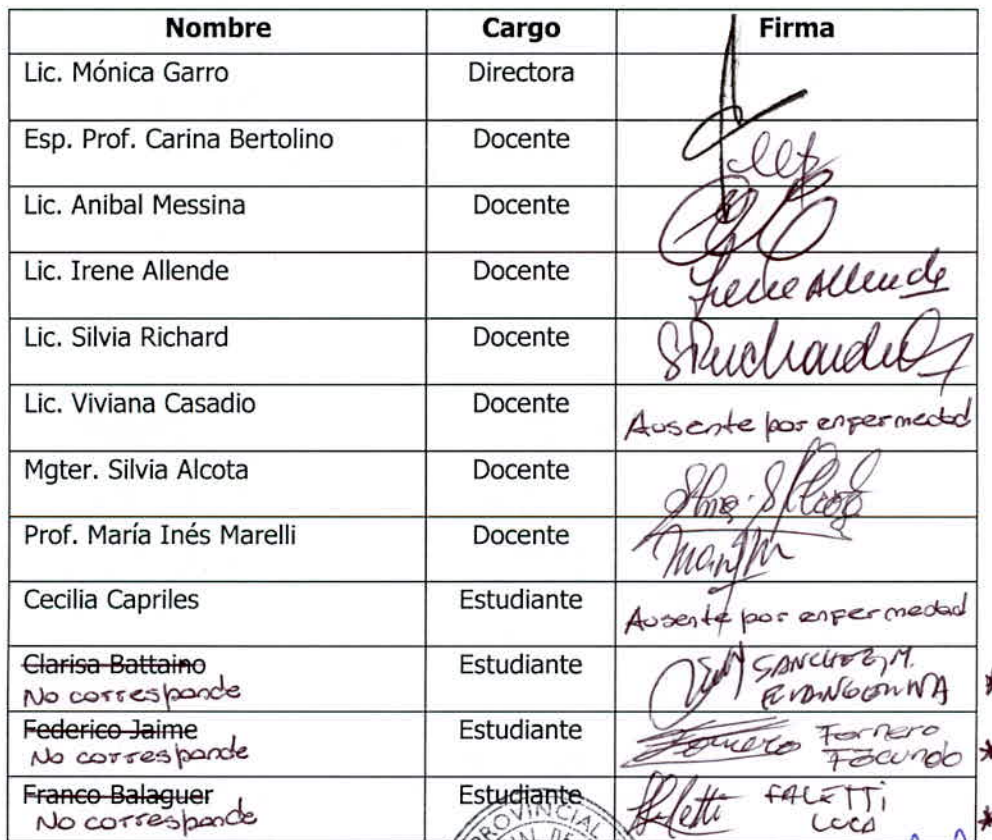 Nombre Cargo Firma
Lic. Mónica Garro Directora
Esp. Prof. Carina Bertolino Docente
Lic. Anibal Messina Docente
Lic. Irene Allende Docente Irene Allende
Lic. Silvia Richard Docente
Lic. Viviana Casadio Docente Ausente por enfermedad
Mgter. Silvia Alcota Docente
Prof. María Inés Marelli Docente
Cecilia Capriles Estudiante Ausente por enfermedad
Clarisa Battaino Estudiante SANCHEZ, M.
No corresponde EVANGELINA *
Federico Jaime Estudiante Fornero
No corresponde Facundo *
Franco Balaguer Estudiante FALETTI
No corresponde LUCA *
PROVINCIAL